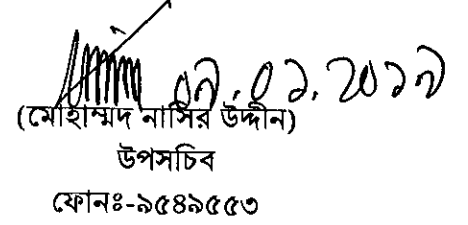 ০৭.০১.২০১৭
(মোহাম্মদ নাসির উদ্দীন)
উপসচিব
ফোনঃ-৯৫৪৯৫৫৩